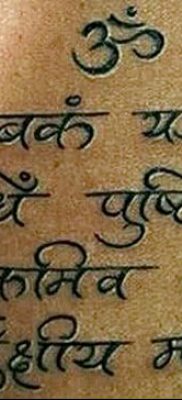 ॐ
बकं य
पुष्टि
रुमिव
र्क्षीय म